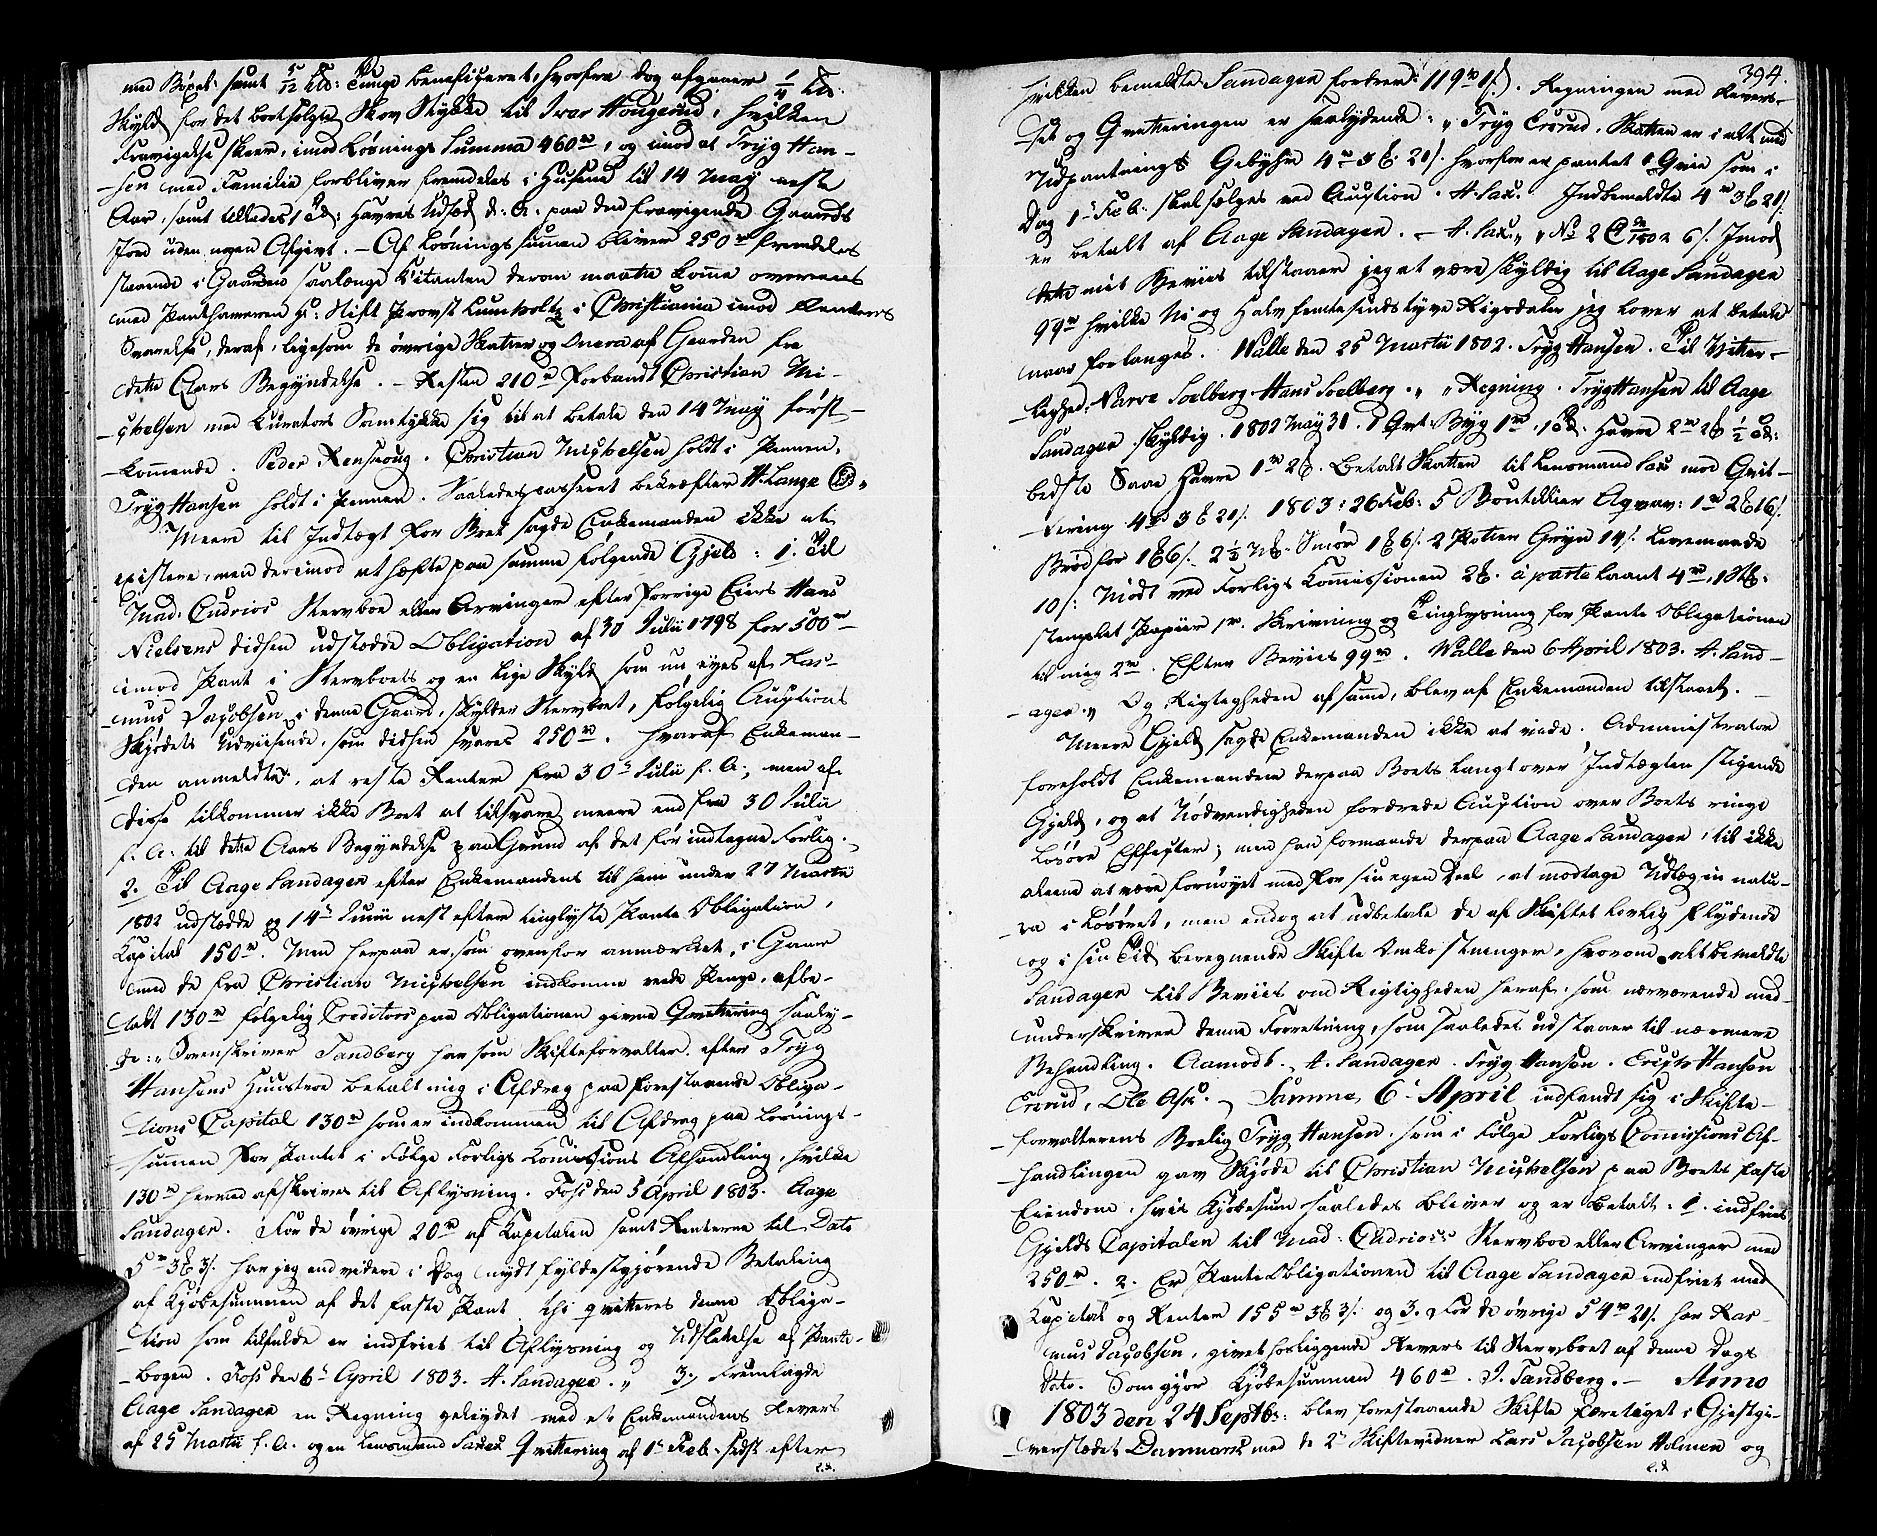 med Bøxel samt 5/12 Hd: Tunge beneficeret, hvorfra dog afgaaer 1/4 Hd:
Skyld for det bortsolgte Skov Stykke til Iver Hougerud, hvilken
Fravigelse skeer, imod Løsnings Summa 460 rd, og imod at Tryg Han-
sen med Familie forbliver fremdeles i Husene til 14 May neste
Aar, samt tillades 1 Td: Havres Udsæd d: A: paa den fravigende Gaards
Jord uden nogen Afgivt. - Af Løsningssummen bliver 250 rd fremdeles
staaende i Gaarden saalænge Citanten derom maatte komme overeens
med Panthaveren Hr: Stift Provst Lumholtz i Christiania imod Renters
Svarelse, deraf, ligesom de øvrige Skatter og Onera af Gaarden fra
dette Aars Begyndelse. - Resten 210 rd forbandt Christian Mi-
chelsen med Curators Samtykke sig til at betale den 14 May først-
kommende. Peder Renskoug. Christian Michelsen holdt i Pennen.
Tryg Hansen holdt i Pennen. Saaledes passeret bekræfter H. Lange
Meere til Indtægt for Boet sagde Enkemanden ikke at
existere, men derimod at hæfte paa samme følgende Gjeld: 1. Til
Mad: Cudrios Stervboe eller Arvinger efter forrige Eiers Hans
Nielsens didhen udstædde Obligation af 30 Julii 1798 for 500 rd
imod Pant i Stervboets og en lige Skyld som nu eyes af Ras-
mus Jacobsen i denne Gaard, skylder Stervboet, følgelig Auctions
Skjødets Udviisende, som didhen svares 250 rd. Hvoraf Enkeman-
den anmeldte, at reste Renter fra 30 Julii f. A:, men af
disse tilkommer ikke Boet at tilsvare meere end fra 30 Julii
f. A: til dette Aars Begyndelse paa Grund af det før indtagne Forlig.
2. Til Aage Sandager efter Enkemandens til ham under 27 Martii
1802 udstædde og 14 Junii nest efter tinglyste Pante Obligation,
Capital 150 rd. Men herpaa er, som ovenfor anmærket, i Gaar
med de fra Christian Michelsen indkomne rede Penge, afbe-
talt 130 rd følgelig Creditors paa Obligationen givne Qvittering saaly-
de: "Sorenskriver Sandberg har som Skifteforvalter efter Tryg
Hansens Huustroe betalt mig i Afdrag paa forestaaende Obliga-
tions Capital 130 rd som er indkommen til Afdrag paa Løsnings-
summen for Pantet i Følge Forligs Comissions Afhandling, hvilke
130 rd hermed afskrives til Aflysning. Foss den 5 April 1803. Aage
Sandager. For de øvrige 20 rd af Kapitalen samt Renterne til Dato
5 rd 3 ß 3 /. har jeg end videre i Dag nydt fyldestgjørende Betaling
af Kjøbesummen af det faste Pant thi qvitteres denne Obliga-
tion som tilfulde er indfriet til Aflysning og Udslettelse af Pante-
bogen. Foss den 6 April 1803. A. Sandager." 3. Fremlagde
Aage Sandager en Regning geleydet med et Enkemandens Revers
af 25 Martii f. A: og en Lensmand Saxes Qvittering af 1 Feb: sidst efter
394.
hvilken bemeldte Sandager fordrer 119 rd 1 /. Regningen med Rever-
set og Qvitteringen er saalydende: "Tryg Crorud, Skatten er i alt med
Udpantnings Gebyhr 4 rd 3 ß 21 /. hvorfor er pantet 1 Qvie som i
Dag 1 Feb: skal sælges ved Auction. A. Sax. Indbemeldte 4 rd 3 ß 21 /.
er betalt af Aage Sandager. - A. Sax." "No 2 1802 6 /. Imod
dette mit Beviis tilstaaer jeg at være skyldig til Aage Sandager
99 rd hvilke Ni og Halvfemtesindstyve Rigsdaler jeg lover at betale
naar forlanges. Walle den 25 Martii 1802. Tryg Hansen. Til Vitter-
lighed: Narve Soelberg. Hans Soelberg." "Regning. Tryg Hansen til Aage
Sandager skyldig. 1802 May 31. Byg 1 rd. 1 Td. Havre 2 rd 2 ß 1/2 Td:
bedste Saae Havre 1 rd 2 ß. Betalt Skatten til Lensmand Sax med Qvit-
tering 4 rd 3 ß 21 /. 1803: 26 Feb: 5 Boutellier Aqvav: 1 rd 2 ß 16 /.
Brød for 1 ß 6 /. 2 1/2 M: Smør 1 ß 6 /. 2 Potter Gryn 14 /. Levemande
10 /: Mødt ved Forligs Commissionen 2 ß. a parte laant 4 rd, 1 Stk:
stemplet Papiir 1 rd. Skrivning og Tinglysning for Pante Obligationen
til mig 2 rd. Efter Beviis 99 rd. Walle den 6 April 1803. A. Sand-
ager." Og Rigtigheden af samme, blev af Enkemanden tilstaaet.
Meere Gjeld sagde Enkemanden ikke at vide. Administrator
foreholdt Enkemanden derpaa Boets langt over Indtægten stigende
Gjeld, og at Nødvendigheden fordrede Auction over Boets ringe
Løsøre Effecter; men han formaaede derpaa Aage Sandager, til ikke
alene at være fornøyet med for sin egen Deel, at modtage Udlæg in natu-
ra i Løsøret, men endog at udbetale de af Skiftet lovlig flydende
og i sin Tid beregnende Skifte Omkostninger, hvorom altbemeldte
Sandager til Beviis om Rigtigheden heraf, som nærværende med-
underskriver denne Forretning, som saaledes udstaaer til nærmere
Behandling. Aamodt. A. Sandager. Tryg Hansen. Crists Hansen
Crorud, Ole Ask. - Samme 6 April indfandt sig i Skifte-
forvalterens Boelig Tryg Hansen, som i Følge Forligs Commissions Af-
handlingen gav Skjøde til Christian Michelsen paa Boets faste
Eiendom, hvis Kjøbesum saaledes bliver og er betalt. 1. indfries
Gjelds Capitalen til Mad: Cudrios Stervboe eller Arvinger med
250 rd. 2. Er Pante Obligationen til Aage Sandager indfriet med
Kapital og Renter 155 rd 3 ß 3 /. og 3. For de øvrige 54 rd 21 /. har Ras-
mus Jacobsen, givet hosliggende Revers til Stervboet af denne Dags
Dato. Som gjør Kjøbesummen 460 rd. J. Sandberg. - Anno
1803 den 24 Septbr: blev forestaaende Skifte foretaget i Gjestgi-
verstædet Dammers med de 2 Skiftevidner Lars Jacobsen Holmen og